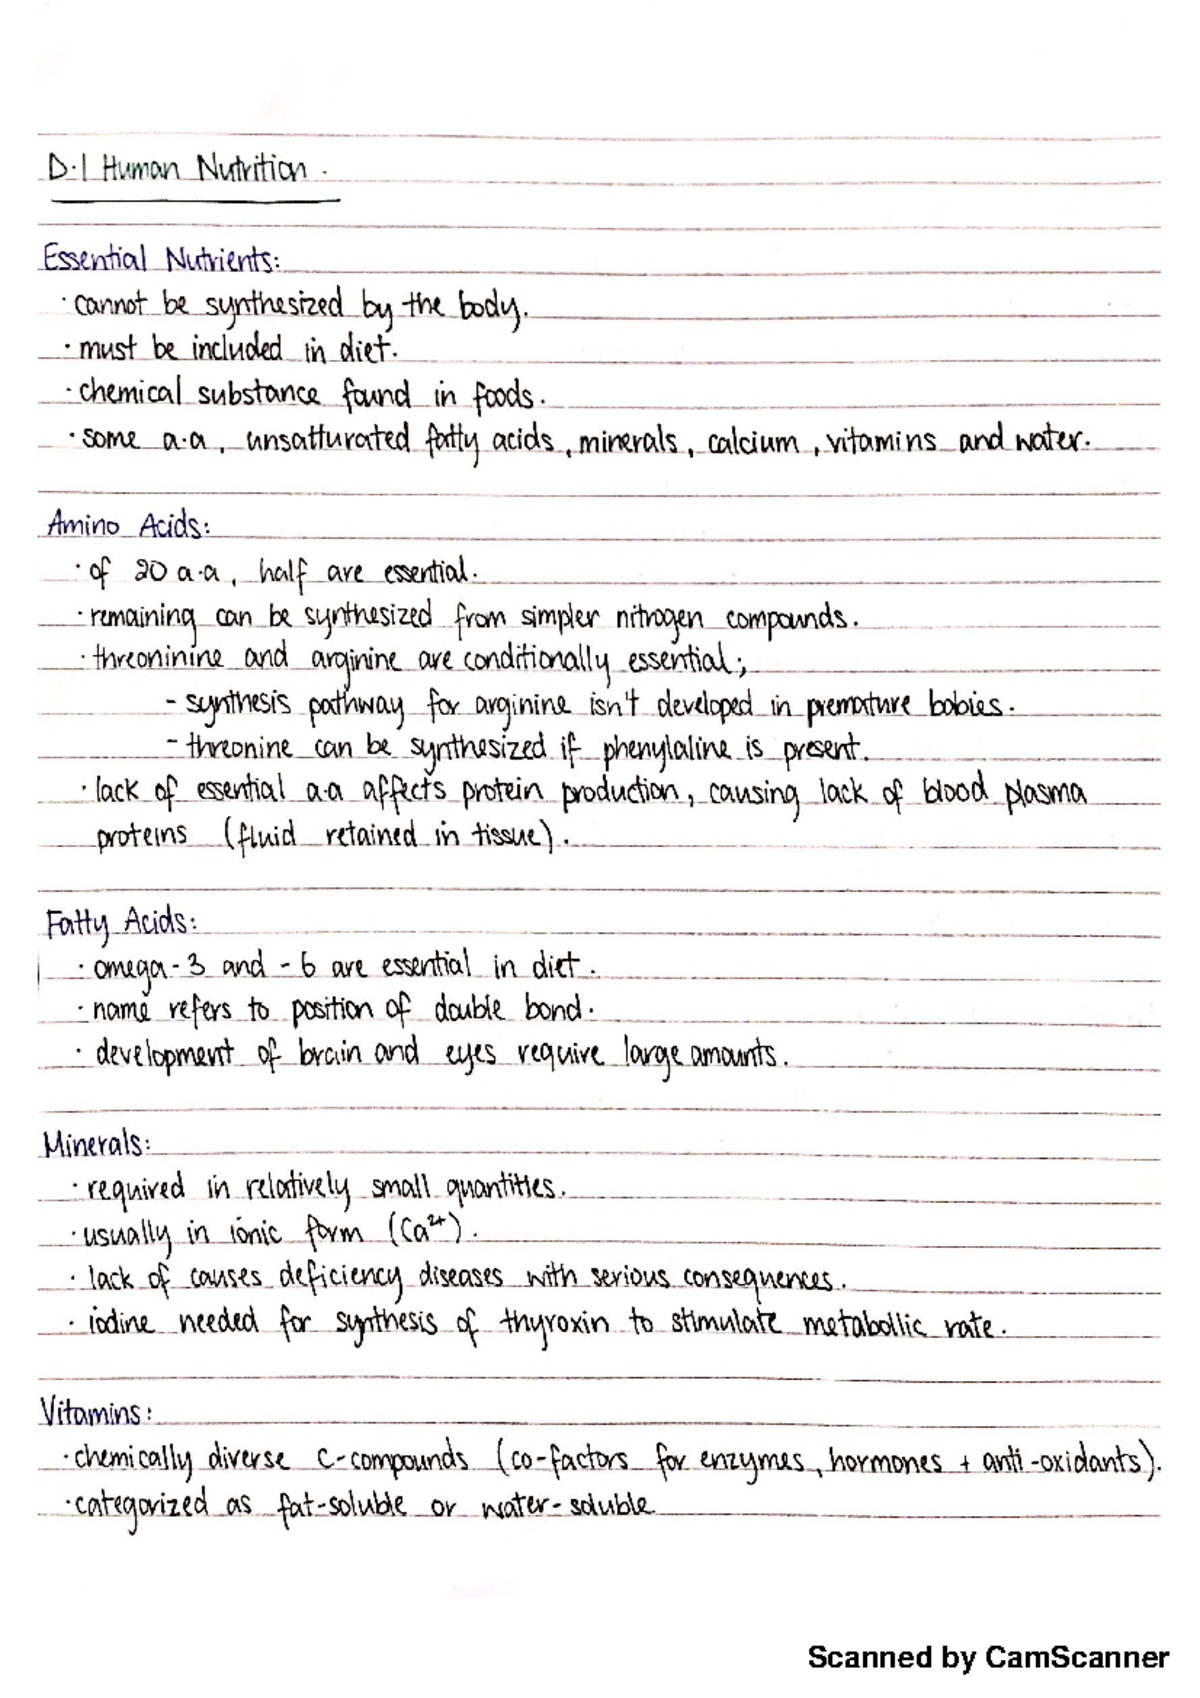 D.1 Human Nutrition.
Essential Nutrients:
· cannot be synthesized by the body.
· must be included in diet.
· chemical substance found in foods.
· some a.a, unsatturated fatty acids, minerals, calcium, vitamins and water.
Amino Acids:
· of 20 a.a, half are essential.
· remaining can be synthesized from simpler nitrogen compounds.
· threoninine and arginine are conditionally essential;
- synthesis pathway for arginine isn't developed in premature babies.
- threonine can be synthesized if phenylaline is present.
· lack of essential a.a affects protein production, causing lack of blood plasma
proteins (fluid retained in tissue).
Fatty Acids:
· omega-3 and -6 are essential in diet.
· name refers to position of double bond.
· development of brain and eyes require large amounts.
Minerals:
· required in relatively small quantities.
· usually in ionic form (Ca²⁺).
· lack of causes deficiency diseases with serious consequences.
· iodine needed for synthesis of thyroxin to stimulate metabollic rate.
Vitamins:
· chemically diverse c-compounds (co-factors for enzymes, hormones + anti-oxidants).
· categorized as fat-soluble or water-soluble
Scanned by CamScanner